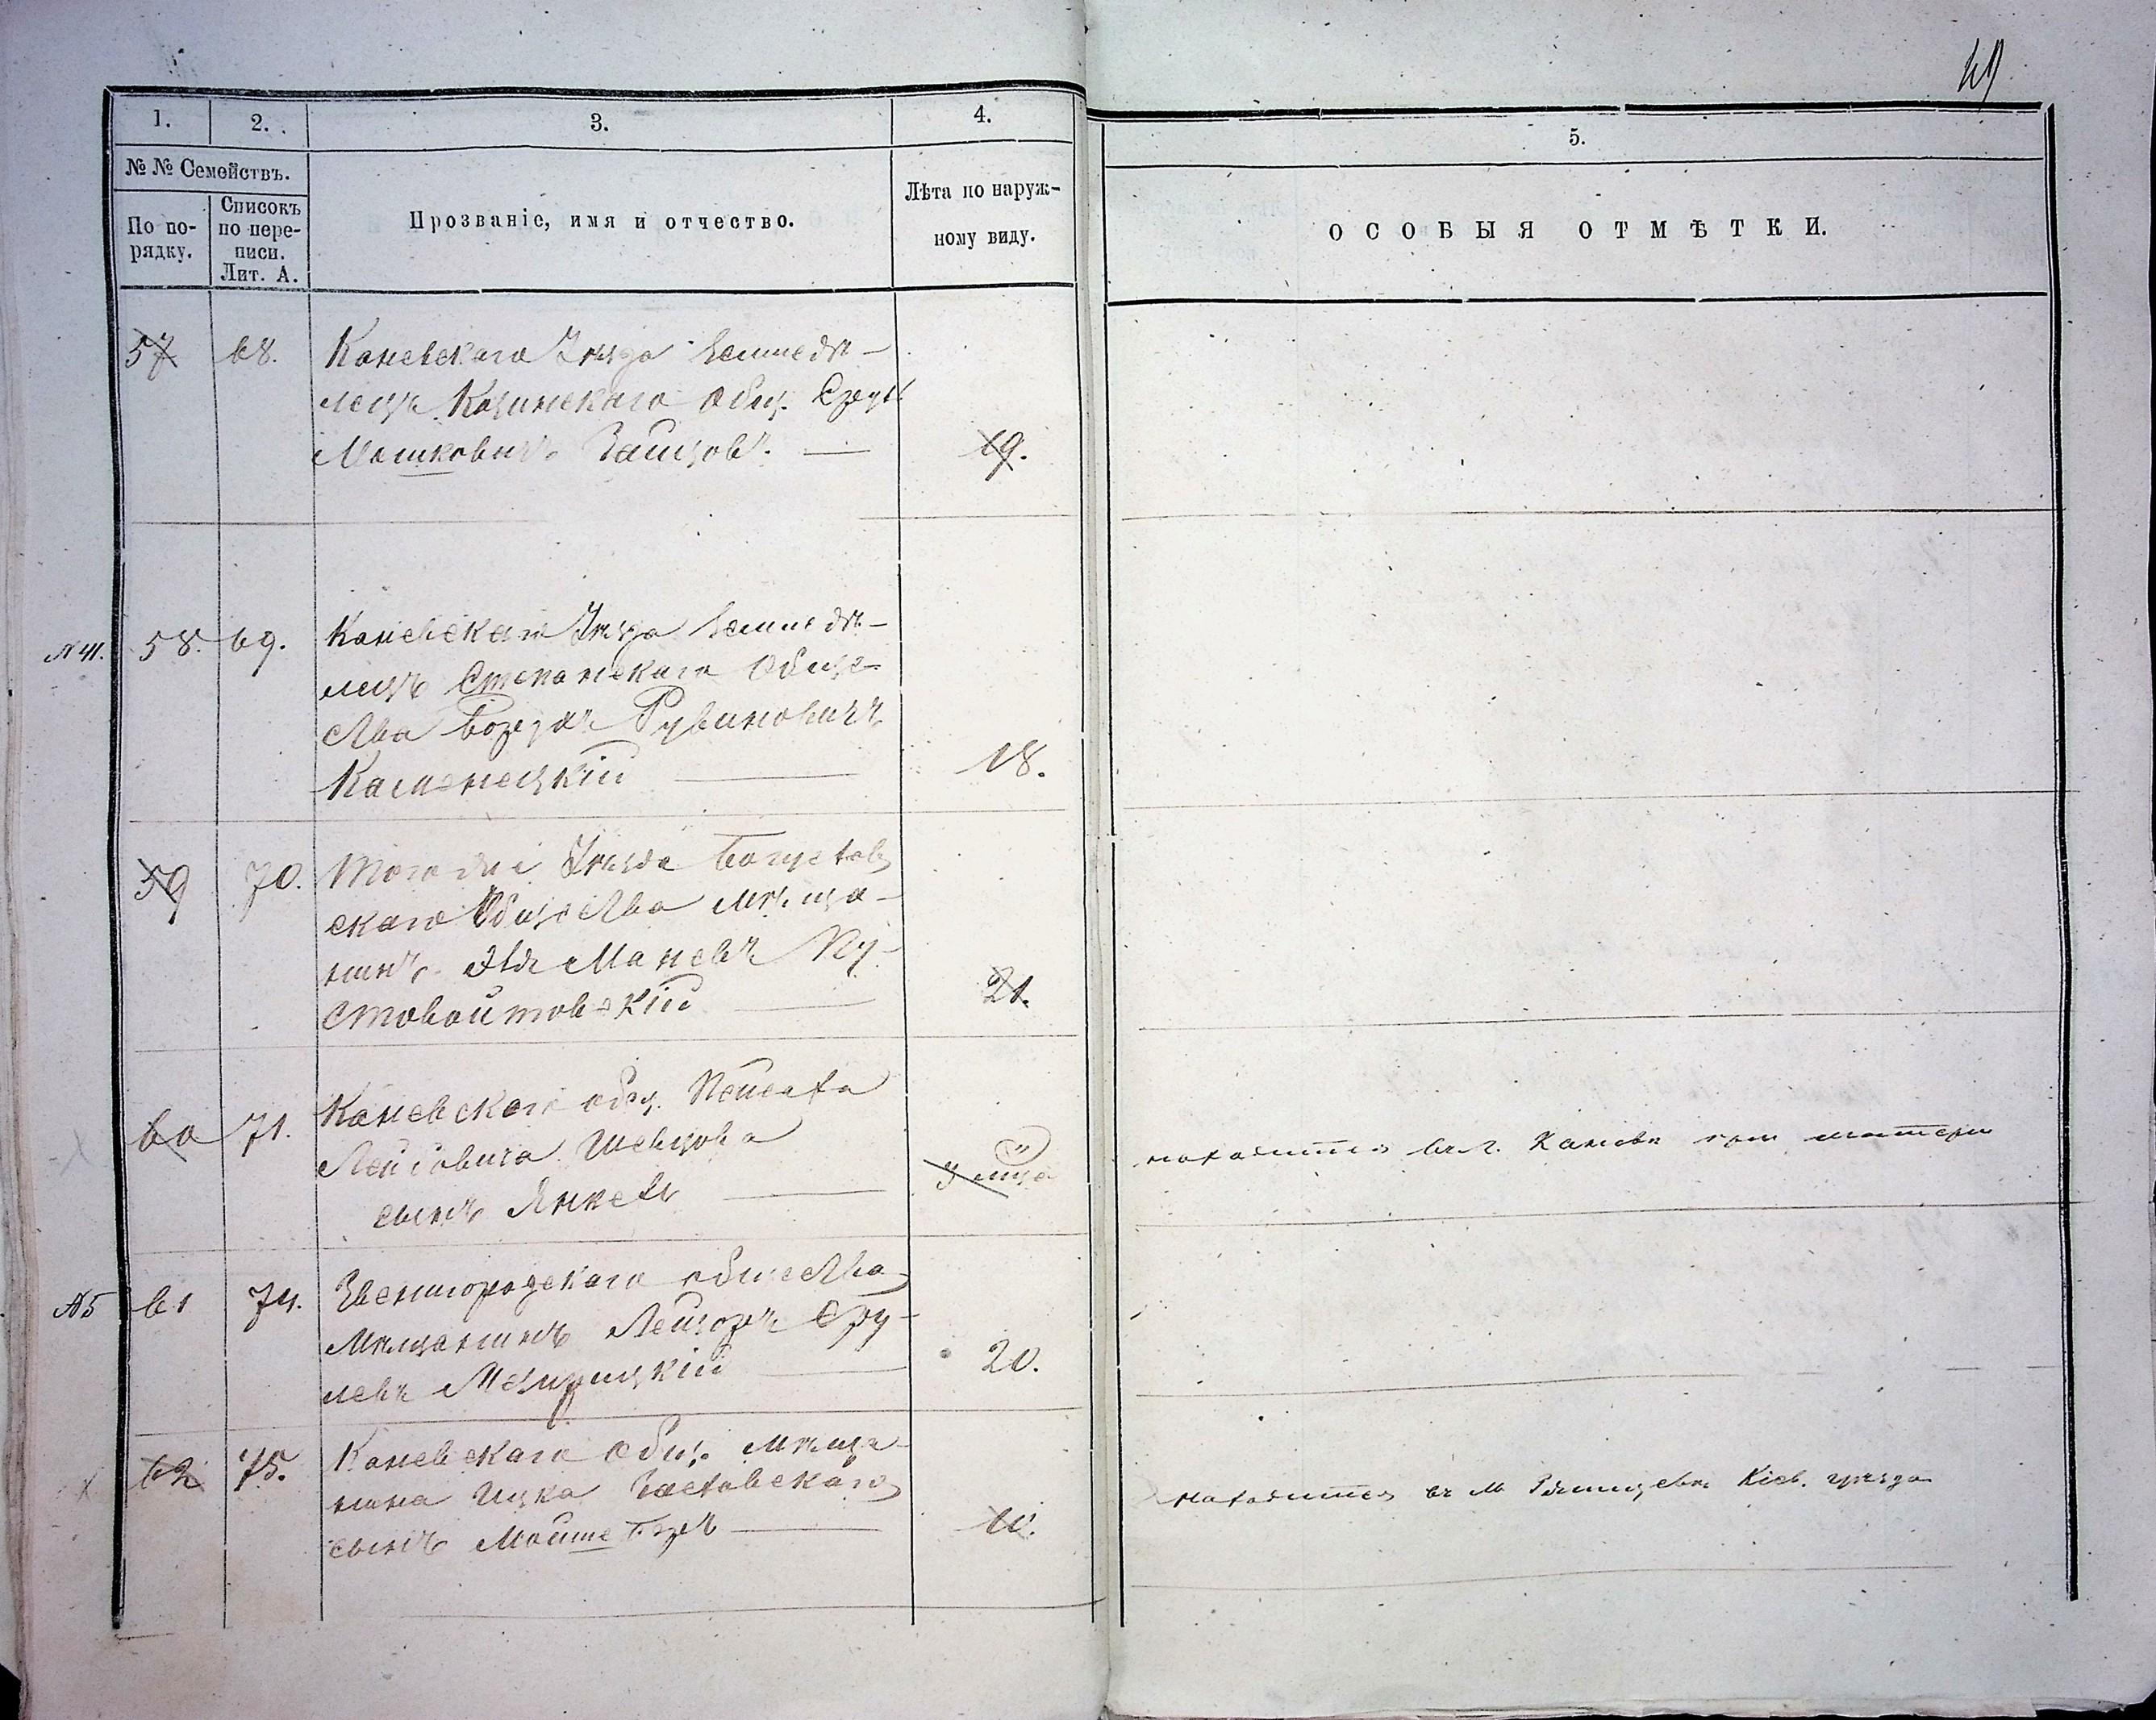 49
1.
2.
3.
4.
5.
№ № Семействъ.
По по-
рядку.
Списокъ
по пере-
писи.
Лит. А.
Прозваніе, имя и отчество.
Лѣта по наруж-
ному виду.
ОСОБЫЯ ОТМѢТКИ.
57 68. Каневскаго Уѣзда Земледѣ-
лецъ Козинскаго Общ. Сруль
Мошковичъ Зайцовъ. 19.
N 41. 58. 69. Каневскаго Уѣзда Земледѣ-
лецъ Степанскаго Обще-
ства Борухъ Рувиновичъ
Каменецкій 18.
59 70. Того же Уѣзда Богуслав
скаго Общества мѣща-
нинъ Эль Маневъ Пу-
стовойтовскій 21.
60 71. Каневскаго общ. Пейсаха
Лейбовича Шевцова
сынъ Янкель 3 мца находится въ г. Каневѣ при матери
N 5 61 74. Звенигородскаго общества
Мѣщанинъ Лейзоръ Сру-
левъ Межирицкій 20.
62 75. Каневскаго Общ. мѣща-
нина Ицка Заславскаго
сынъ Мойше Беръ 10. находится въ м Ржищевѣ Кіев. уѣзда